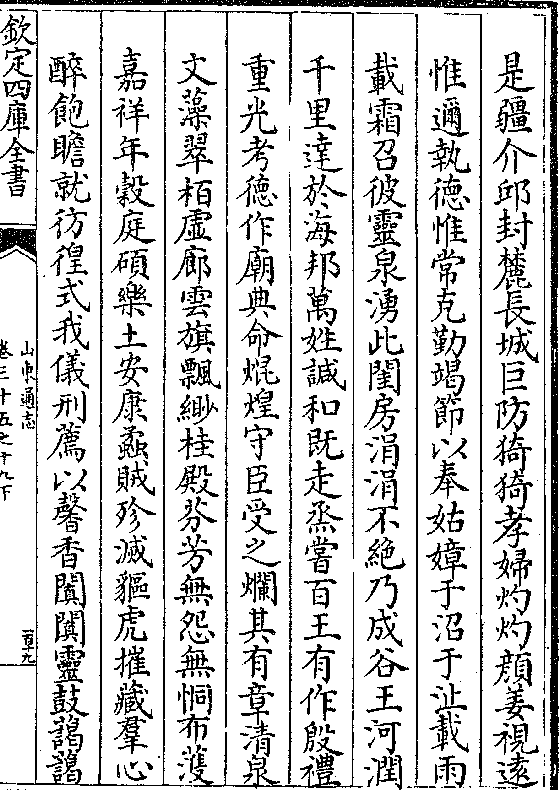 是疆介邱封麓長城巨防猗猗孝婦灼灼顔姜視遠
惟邇執德惟常克勤竭節以奉姑嫜于沼于沚載雨
載霜召彼靈泉湧此閨房涓涓不絶乃成谷王河潤
千里達於海邦萬姓諴和既走烝嘗百王有作殷禮
重光考德作廟典命焜煌守臣受之爛其有章清泉
文藻翠栢虛廊雲旗飄緲桂殿芬芳無怨無恫布濩
嘉祥年榖庭碩樂土安康蟊賊殄滅貙虎摧藏羣心
醉飽瞻就彷徨式我儀刑薦以馨香闐闐靈鼓藹藹
欽定四庫全書
山東通志
卷三十五之十九下
百十九